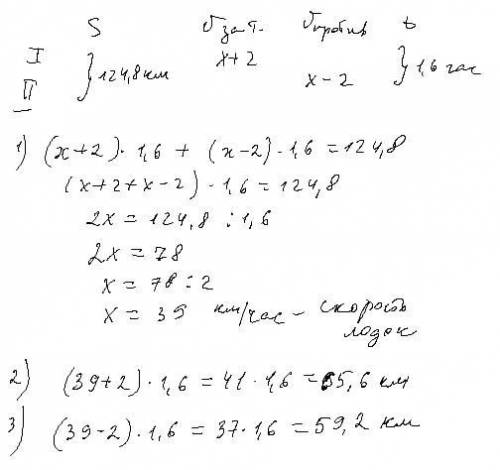 S V за т. V против t
I x+2
II } 124,8 км x-2 } 1,6 час
1) (x+2)·1,6 + (x-2)·1,6 = 124,8
(x+2+x-2)·1,6 = 124,8
2x = 124,8 : 1,6
2x = 78
x = 78 : 2
x = 39 км/час - скорость
лодок
2) (39+2)·1,6 = 41·1,6 = 65,6 км
3) (39-2)·1,6 = 37·1,6 = 59,2 км